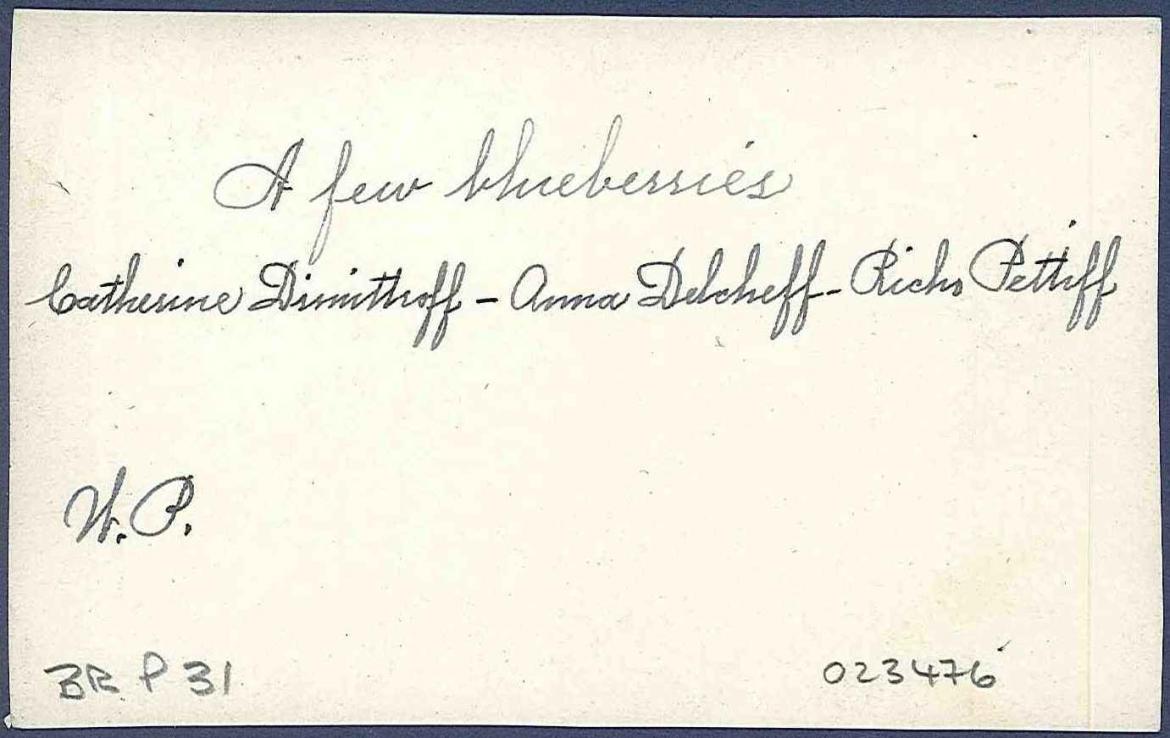 A few blueberries
Catherine Dimittroff - Anna Delcheff - Richo Pettiff
W.P.
BR P 31 023476